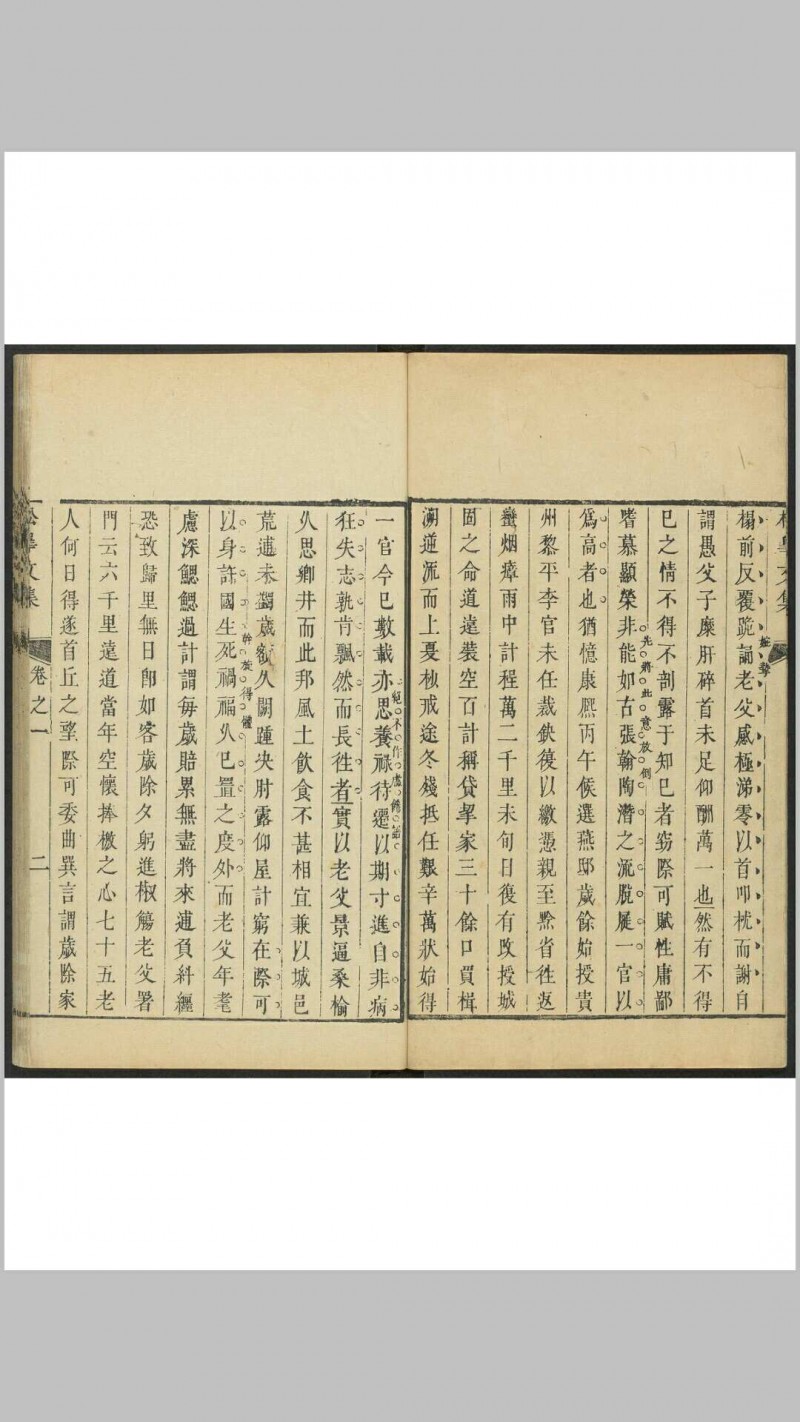 榻前反覆跪誦老父感極涕零以首叩枕而謝自
謂愚父子糜肝碎首未足仰酬萬一也然有不得
已之情不得不剖露于知己者窃際可賦性庸鄙
嗜慕顯榮非能如古張翰陶潛之流脫屣一官以
先將此意放倒
為高者也猶憶康熙丙午候選燕邸歲餘始授貴
州黎平李官未任裁缺復以繳憑親至黔省徃返
蠻烟瘴雨中計程萬二千里未旬日復有改授城
固之命道遠裝空百計稱貸挈家三十餘口買楫
溯道流而上戛秋戒途冬殘抵任艱辛萬狀始得
一官今已數載亦思養祿待遷以期寸進自非病
狂失志孰肯飄然而長徃者實以老父景逼桑榆
久思鄉井而此邦風土飲食不甚相宜兼以城邑
荒逋未蠲歲額久闕踵决肘露仰屋計窮在際可
以身許國生死禍福久已置之度外而老父年耄
斡旋得體
慮深鰓鰓過計謂每歲賠累無盡將來逋負糾纏
恐致歸里無日卽如客歲除夕躬進椒觴老父署
門云六千里遠道當年空懷捧檄之心七十五老
人何日得遂首丘之望際可委曲巽言謂歲除家
文集
卷之一
二